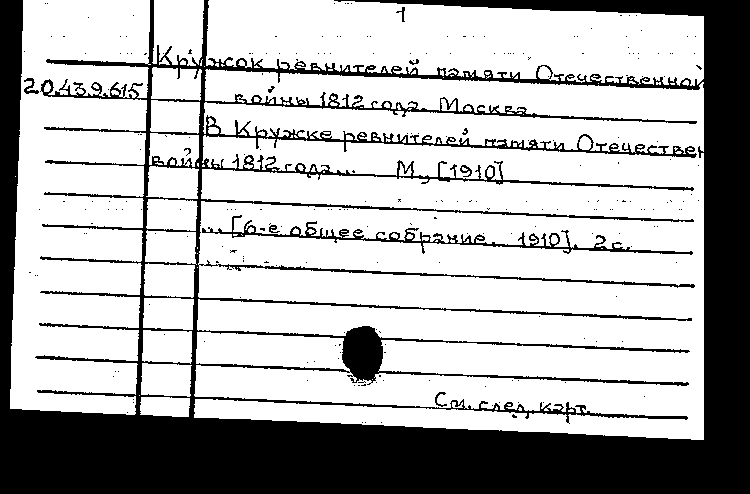 1
Кружок ревнителей памяти Отечественной
20.439.615 войны 1812 года. Москва.
В Кружке ревнителей памяти Отечествен
войны 1812 года... М., [1910]
... [6-е общее собрание. 1910]. 2 с.
См. след. карт.